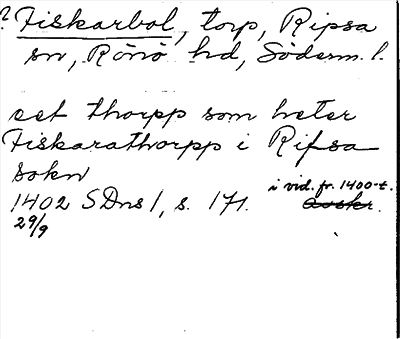 ? Fiskarbol, torp, Ripsa
sn, Rönö hd, Söderm. l.
eet thorpp som heter
Fiskarathorpp i Rifsa
sokn
1402 SDns 1, s. 171. i vid. fr. 1400-t.
29/9 avskr.